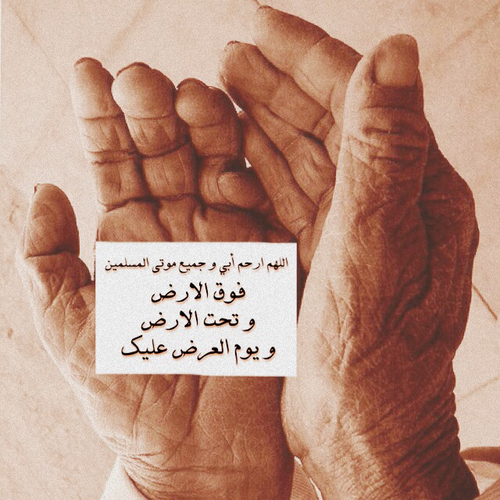 اللهم ارحم أبي و جميع موتى المسلمين
فوق الارض
و تحت الارض
و يوم العرض عليک